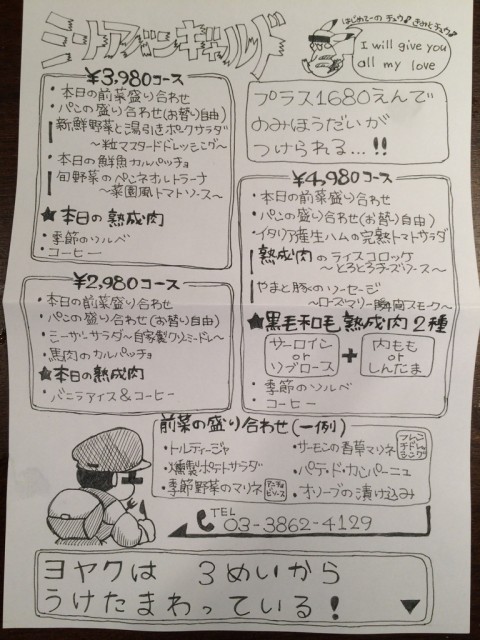 ミートアパンギャルド
はじめてーの チュウ♪ きみとチュウ♪
I will give you
all my love
¥3,980コース
・本日の前菜盛り合わせ
・パンの盛り合わせ(お替り自由)
新鮮野菜と湯引きポークサラダ
〜粒マスタードドレッシング〜
・本日の鮮魚カルパッチョ
旬野菜のペンネオルトラーナ
〜菜園風トマトソース〜
★本日の熟成肉
・季節のソルベ
・コーヒー
プラス1680えんで
のみほうだいが
つけられる…!!
¥4,980コース
・本日の前菜盛り合わせ
・パンの盛り合わせ(お替り自由)
・イタリア産生ハムの完熟トマトサラダ
熟成肉のライスコロッケ
〜とろとろチーズソース〜
やまと豚のソーセージ
〜ローズマリー瞬間スモーク〜
★黒毛和毛 熟成肉 2種
サーロイン
or
リブロース
+
内もも
or
しんたま
・季節のソルベ
・コーヒー
¥2,980コース
・本日の前菜盛り合わせ
・パンの盛り合わせ(お替り自由)
・シーザーサラダ〜自家製クリーミードレ〜
・馬肉のカルパッチョ
★本日の熟成肉
・バニラアイス&コーヒー
前菜の盛り合わせ(一例)
・トルティージャ
・燻製ポテトサラダ
・季節野菜のマリネ
・サーモンの香草マリネ
フレンチドレッシング
・パテ・ド・カンパーニュ
・オリーブの漬け込み
TEL
03-3862-4129
ヨヤクは 3めいから
うけたまわっている! ▼